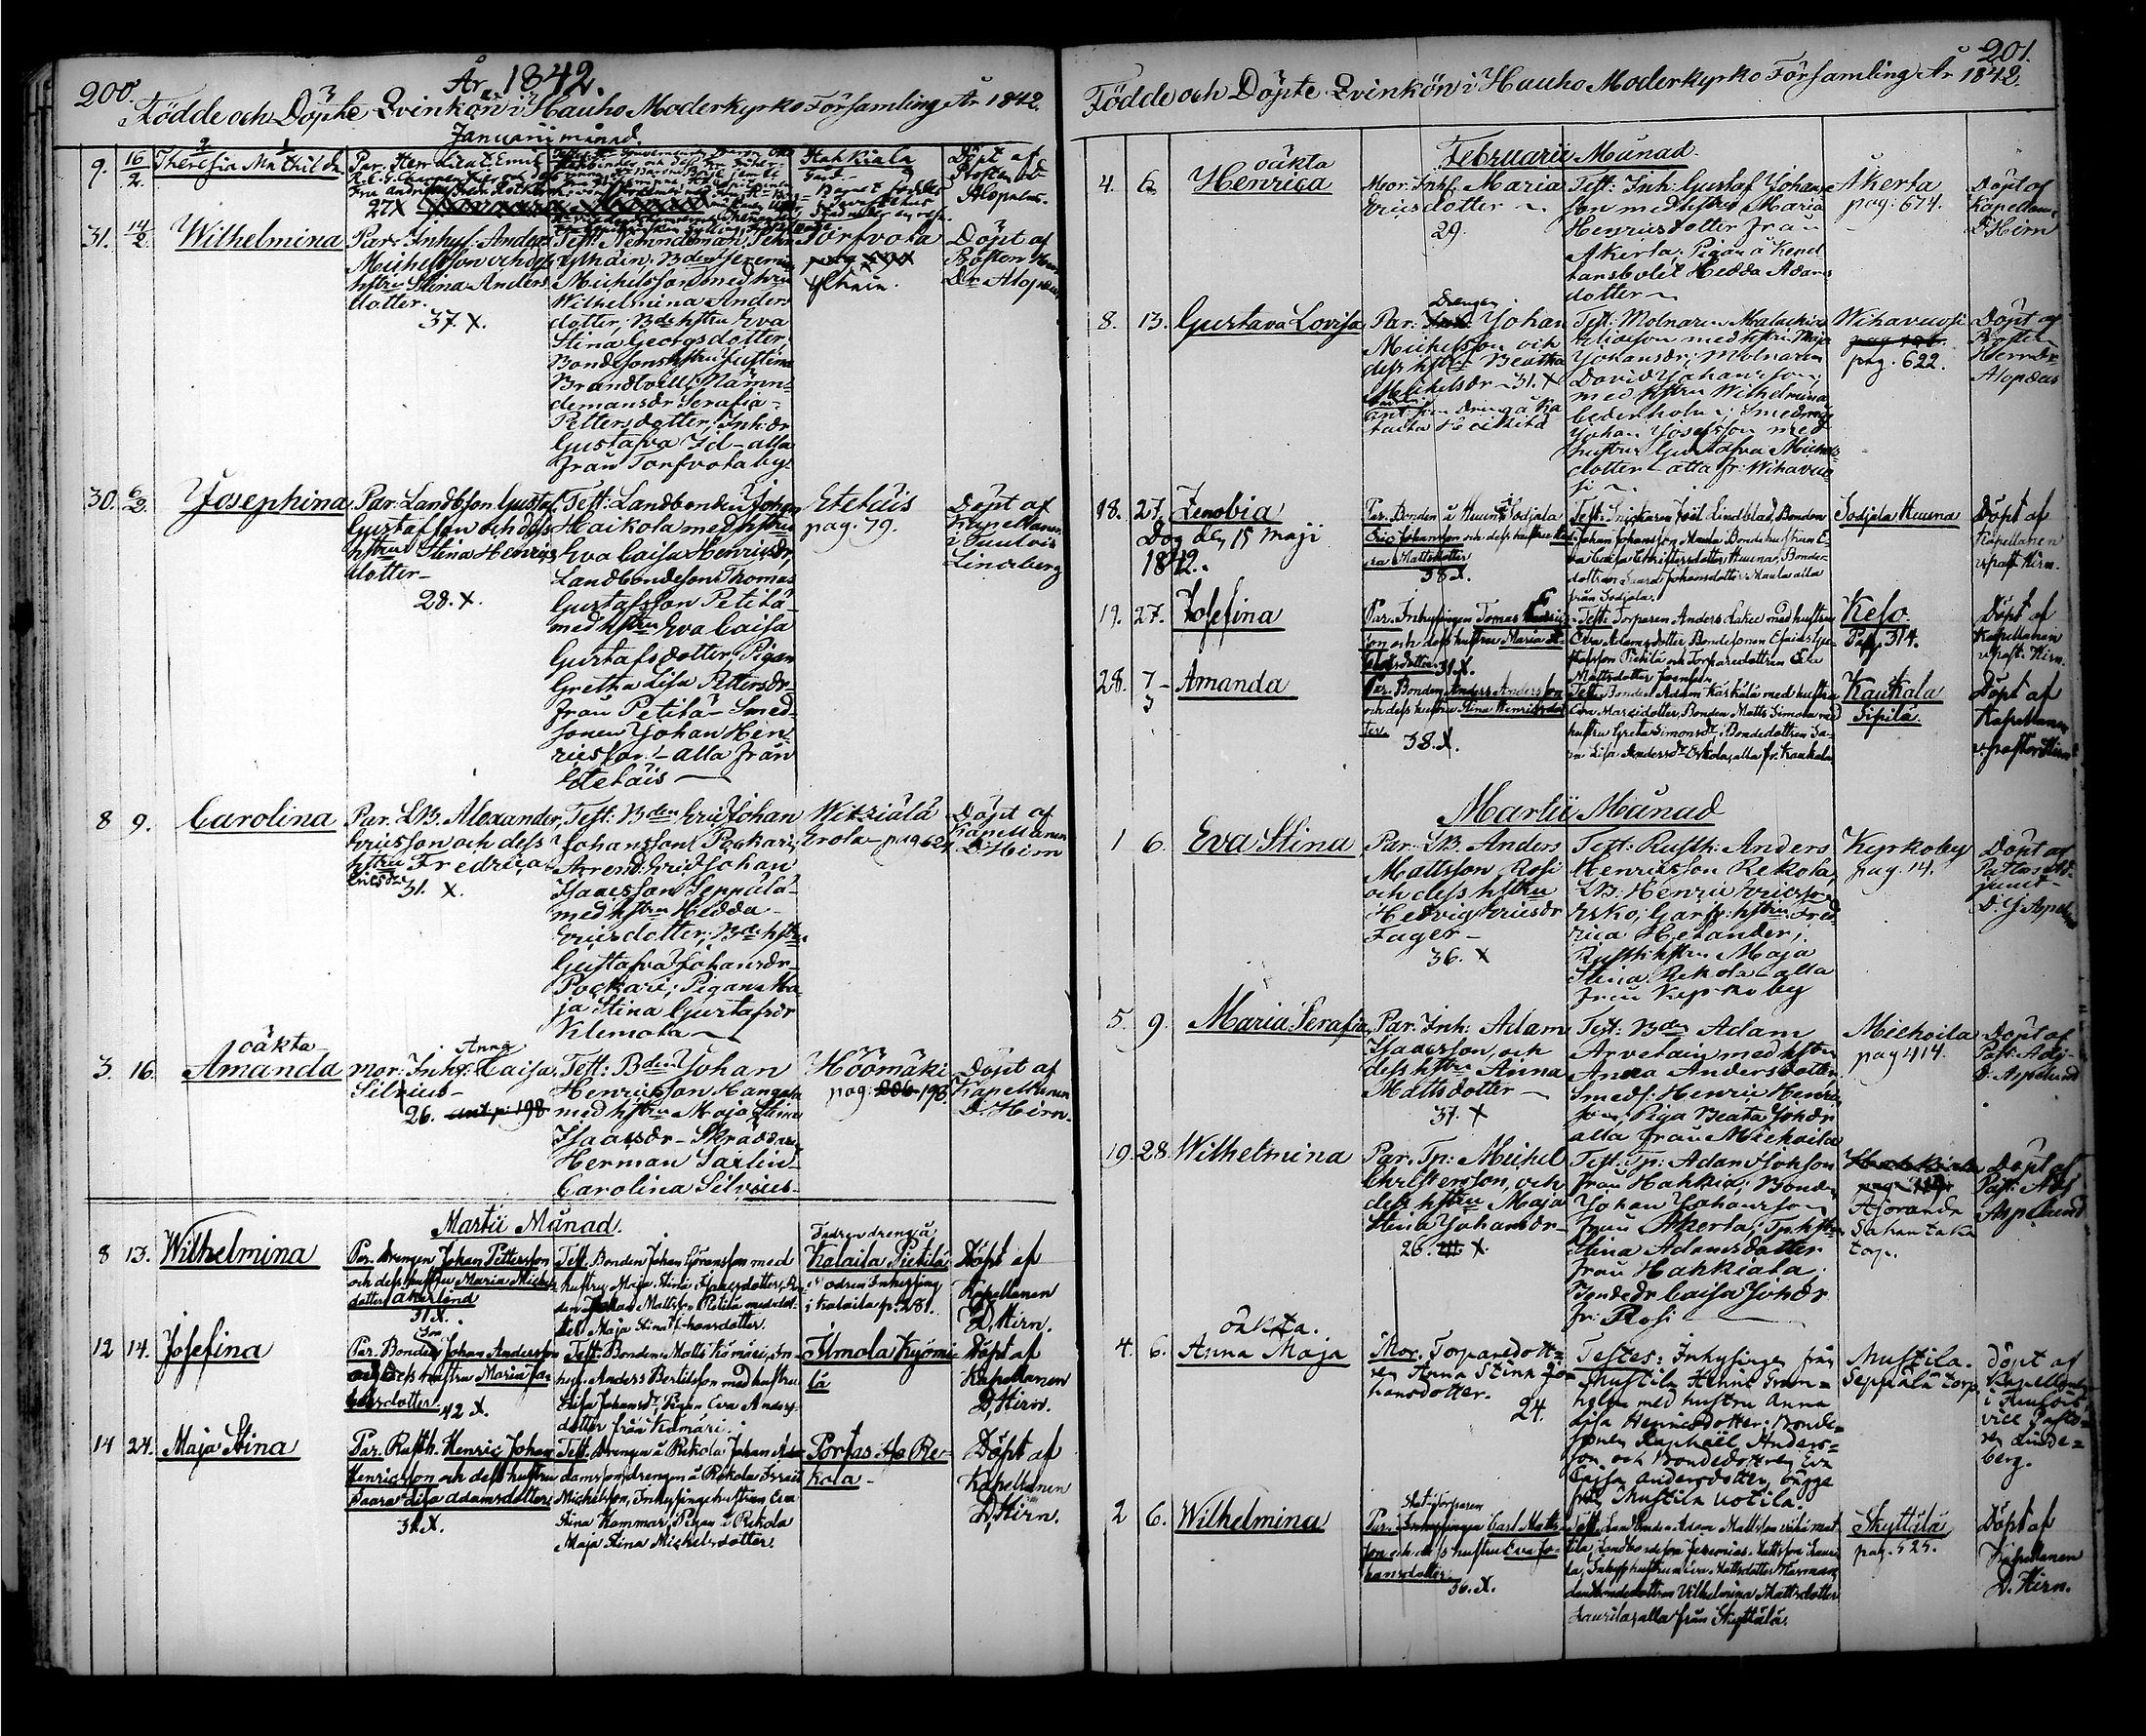 200.
År 1842.
Födde och Döpte Qvinkön i Hauho Moderkyrko Församling År 1842.
Januarii månad.
9. 16/2. Theresia Mathilda
27 X
Hahkiala
Gård
Döpt af
Prosten
Alopæus.
31. 14/2. Wilhelmina
Par. Inhys: Anders
Michelsson och dess
hstru Stina Anders
dotter.
37. X.
Test: Nemndeman
Michelsson med hstru
Wilhelmina Anders
dotter, Bde hstru Eva
Stina Georgsdotter,
Bondesons hstru Justina
Brandtvill, Nämn-
demansdr Serafia
Pettersdotter, Inh: dr
Gustafva Id - alla
från Torfvola by.
Torfvola
Döpt af
Prosten Herr
Dr Alopæus
30. 6/2. Josephina
Par: Landbson Gustaf
Gustafsson och dess
hstru Stina Henrics
dotter-
28. X.
Test: Landbonden Johan
Haikola med hstru
Eva Caisa Henricsdr,
Landbondeson Thomas
Gustafsson Petilä
med hstru Eva Caisa
Gustafsdotter, Pigan
Gretha Lisa Pettersdr
från Petilä - Smed-
sonen Johan Hen-
ricsson - alla från
Eteläis
Eteläis
pag. 79.
Döpt af
Kapellanen
i Tuulois
Lindeberg
8 9. Carolina
Par. LB. Alexander
Ericsson och dess
hstru Fredrica
Ericsdr
31. X.
Test: Bden Eric Johan
Johansson Pockari,
Arrend: Eric Johan
Isaacsson Seppälä
med hstru Hedda
Ericsdotter; Bde hstru
Gustafva Johansdr
Pockari; Pigan Ma-
ja Stina Gustafsdr
Klemola
Witsiälä
Erola - pag 624
Döpt af
Kapellanen
D: Hirn
3. 16. oäkta
Amanda
Mor: Inhs: Anna Caisa
Silvius-
26. 198
Test: Bden Johan
Henricsson Hangala
med hstru Maja Stina
Isaacsdr - Skräddare
Herman Sailin
Carolina Silvius-
Höömäki
pag: 206 198.
Döpt af
Kapellanen
D: Hirn.
Martii Månad.
8 13. Wilhelmina
Par. Drengen Johan Pettersson
och dess hustru Maria Michels
dotter Åkerlind
31 X.
Test. Bonden Johan Göransson med
hustru Maja Stina Isaacsdotter, Bon-
den Johan Mattsson Pietilä med dot-
ter Maja Stina Johansdotter.
Fadren dreng å
Kalaila Pietilä
Modren Inhysing
i Kalaila p. 281.
Döpt af
Kapellanen
D. Hirn.
12 14. Josefina
Par. Bonden Johan Andersson
och dess hustru Maria Ja-
cobsdotter.
42 X.
Test. Bonden Matts Kömäri, In-
hys. Anders Bertilsson med hustru
Lisa Johansdr, Pigan Eva Anders-
dotter från Kömäri.
Ilmola Kyömi-
lä
Döpt af
Kapellanen
D. Hirn.
14 24. Maja Stina
Par. Rusth. Henric Johan
Henricsson och dess hustru
Saara Lisa Adamsdotter
31. X.
Test. Drengen å Rekola Johan Ada-
damsson, drengen å Rekola Israel
Michelson, Inhysingehustrun Eva
Stina Hammar, Pigan å Rekola
Maja Stina Michelsdotter.
Porsas Ho Re-
kola-
Döpt af
Kapellanen
D. Hirn.
201.
Födde och Döpte Qvinkön i Hauho Moderkyrko Församling År 1842.
Februarii Månad.
4. 6 oäkta
Henrica
Mor: Inhs. Maria
Ericsdotter
29.
Test: Inh: Gustaf Johans
son med hstru Maria
Henricsdotter från
Akerla, Pigan å Kapel-
lansbolet Hedda Adams
dotter
Akerla
pag: 674.
Döpt af
Kapellan
D: Hirn
8. 13. Gustava Lovisa
Par: Drengen Johan
Michelsson och
dess hstru Beatha
Michelsdr - 31. X
Test: Molnaren Malachias
Eliasson med hstru Maja
Johansdr; Molnaren
David Johansson,
med hstru Wilhelmina
Cederholm; Smeden
Johan Josefsson med
hustru Gustafva Michels
dotter - alla fr: Wihavuo-
si
Wihavuosi
pag. 622.
Döpt af
Prosten
Herr Dr
Alopæus
18. 27. Zenobia
Dog den 15 Maji
1842.
Par. Bonden å Huuna i Sodjala
Eric Johansson och dess hustru
Mattsdotter
38 X.
Test. Snickaren Joel Lindblad, Bonden
Johan Johansson Maula Bondehustrun E-
va Caisa Christersdotter Huuna, Bonde-
dottren Saara Johansdotter Maula alla
från Sodjala.
Sodjala Huuna
Döpt af
Kapellanen
v.past. Hirn.
19. 27. Josefina
Par. Inhysingen Tomas
son och dess hustru Maria
31. X.
Test. Torparen Anders Lakee med hustru
Eva Adamsdotter Bondesonen Esaias Gu-
stafsson Pietilä och Torparedottren Eva
Mattsdotter
Keso.
Pag. 314.
Döpt af
Kapellanen
v.past. Hirn.
28. 7/3 Amanda
Par. Bonden Anders Andersson
och dess hustru Stina Henricsdot
ter.
38. X.
Test. Bonden Adam Kaskala med hustru
Eva Marcidotter, Bonden Matts Simola med
hustru Greta Simonsdr, Bondedottren Sa-
ra Lisa Andersdr Eskola, alla fr. Kaukala
Kaukala
Sipilä.
Döpt af
Kapellanen
v.pastor Hirn
Martii Månad
1 6. Eva Stina
Par: LB. Anders
Mattsson Rosi
och dess hstru
Hedvig Ericsdr
Fager-
36. X
Test: Rusth: Anders
Henricsson Rekola,
LB. Henric Ericsson
Esko; Garfv: hstru Fred
rica Helander;
Rusth hstru Maja
Stina Rekola - alla
från Kyrkoby
Kyrkoby
pag. 14.
Döpt af
Pastors Ad-
junct
D. J Aspelund
5. 9. Maria Serafia
Par. Inh: Adam
Isaacsson, och
dess hstru Anna
Mattsdotter
37. X
Test: Bden Adam
Arvelain med hstru
Anna Andersdotter,
Smeds: Henric Henrics
son, Piga Beata Johdr
alla från Miehoila
Miehoila
pag 414.
Döpt af
Past: Adj-
D. Aspelund
19. 28. Wilhelmina
Par. Tp: Michel
Christersson, och
dess hstru Maja
Stina Johansdr-
26. X.
Test: Tp: Adam Johsson
från Hahkiala, Bonden
Johan Johansson
från Akerla, Tp hstru
Stina Adamsdotter
från Hahkiala.
Bondedr Caisa Johdr
fr: Rosi
Alvanda
Sahantaka
torp.
Döpt af
Past: Adj
Aspelund
4. 6. oäkta.
Anna Maja
Mor. Torparedott-
ren Anna Stina Jo-
hansdotter.
24.
Testes: Inhysingen från
Mustila Henric Gran-
holm med hustru Anna
Lisa Henricsdotter; Bonde-
sonen Raphaël Anders-
son och Bondedottren Eva
Caisa Andersdotter, bägge
från Mustila Uotila.
Mustila.
Seppälä torp
Döpt af
Kapellanen
i Tuulois,
vice Pasto-
ren Linde-
berg.
2 6. Wilhelmina
Par. Inhysingen Carl Matts-
son och dess hustru Eva Jo-
hansdotter.
36. X.
Test. Landbonden Adam Mattsson
tila, Landbondeson Jeremias Mattsson Lauri-
la, Inhysehustrun Eva Mattsdotter
Landbondedottren Vilhelmina Mattsdotter
Laurila, alla från Skyttälä.
Skyttälä
pag. 525.
Döpt af
Kapellanen
D. Hirn.